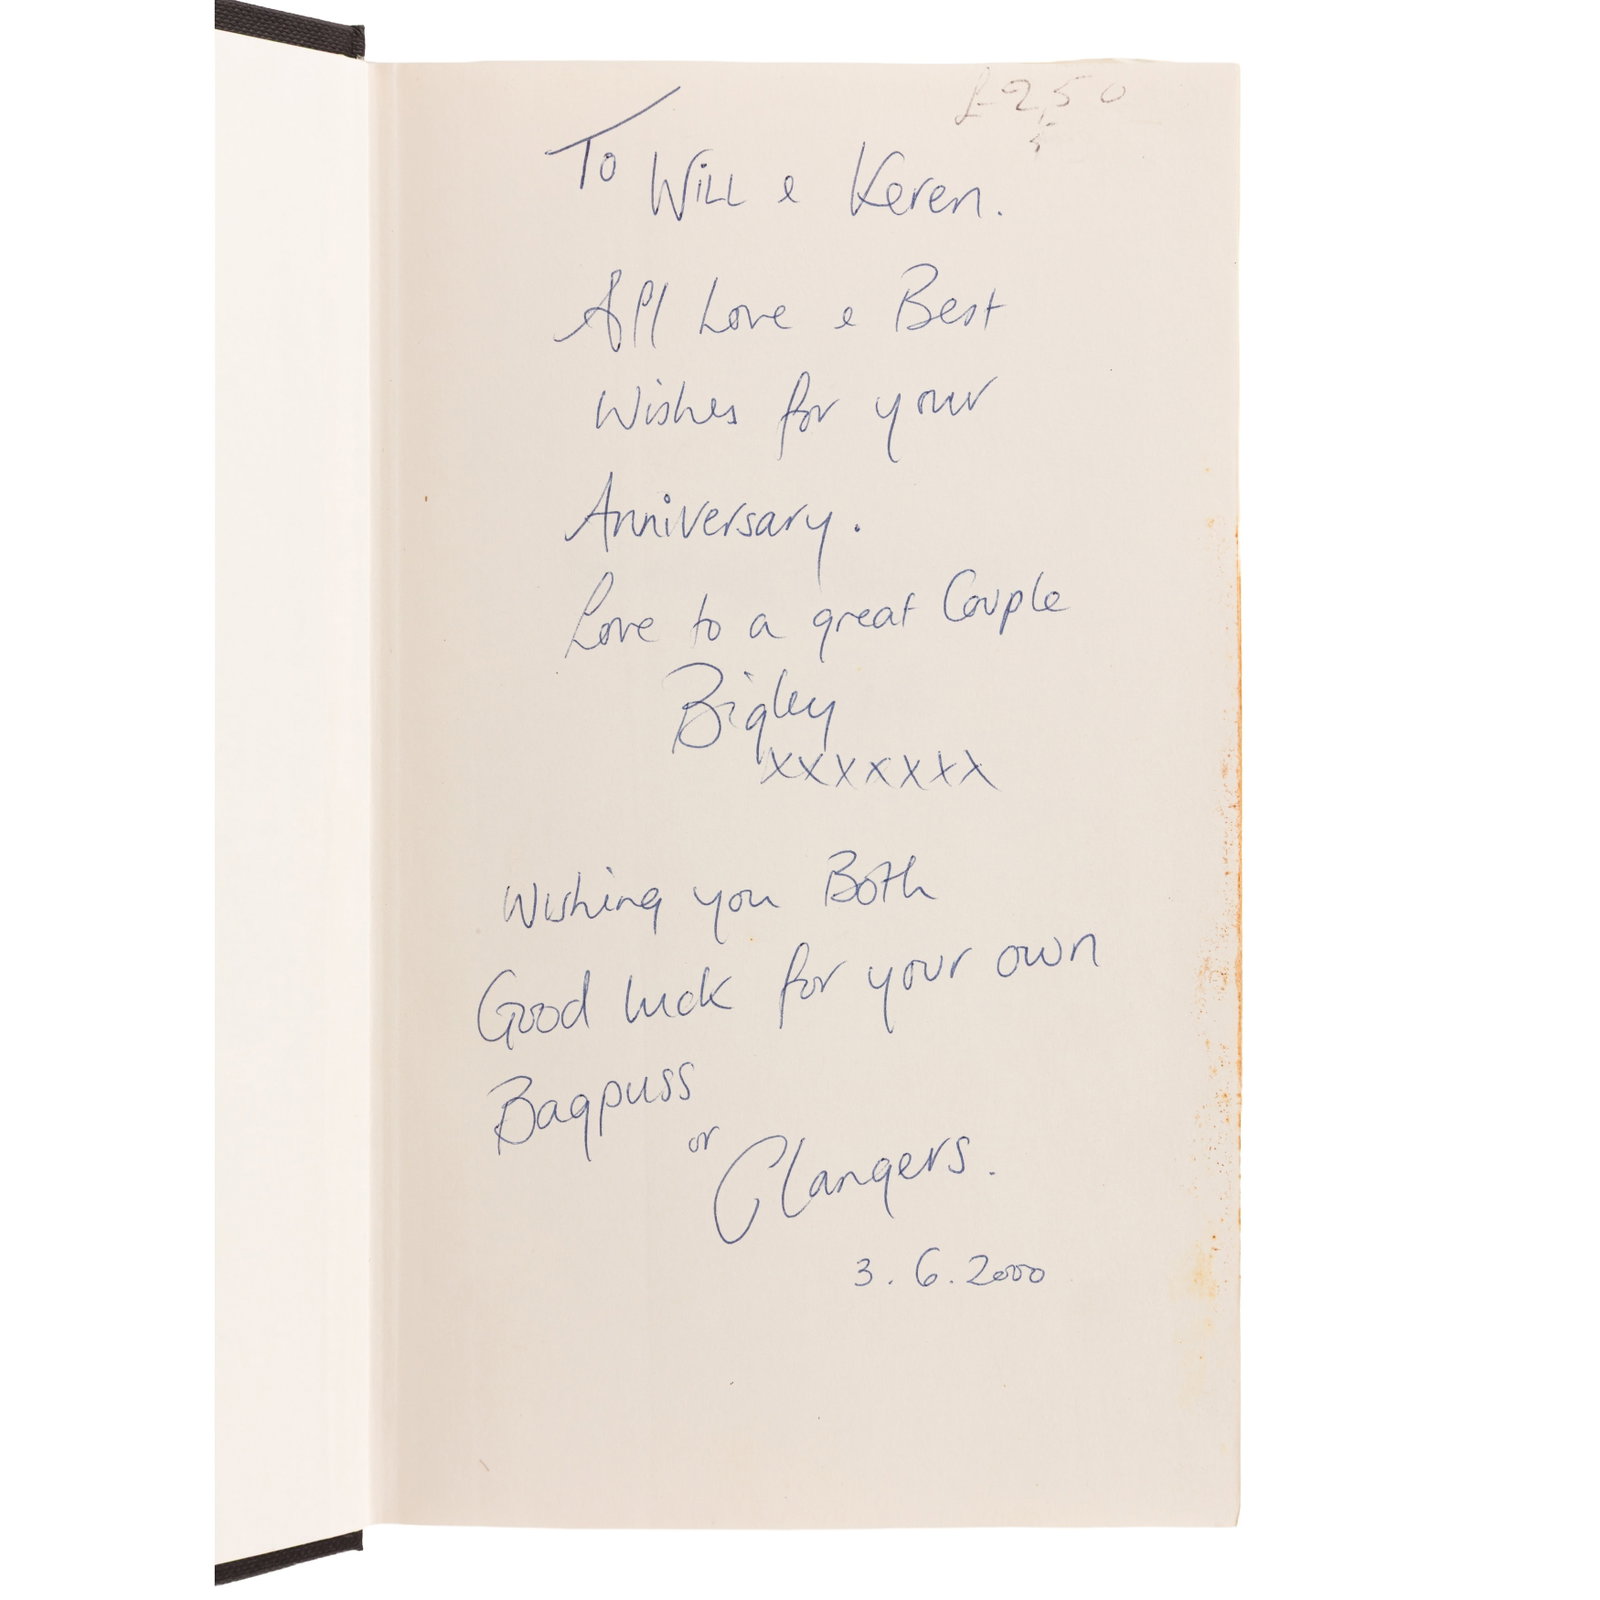 £2,50
To Will & Keren.
All Love & Best
Wishes for your
Anniversary.
Love to a great Couple
Bigley
xxxxxxx
Wishing you Both
Good luck for your own
Bagpuss
or
Clangers.
3.6.2000